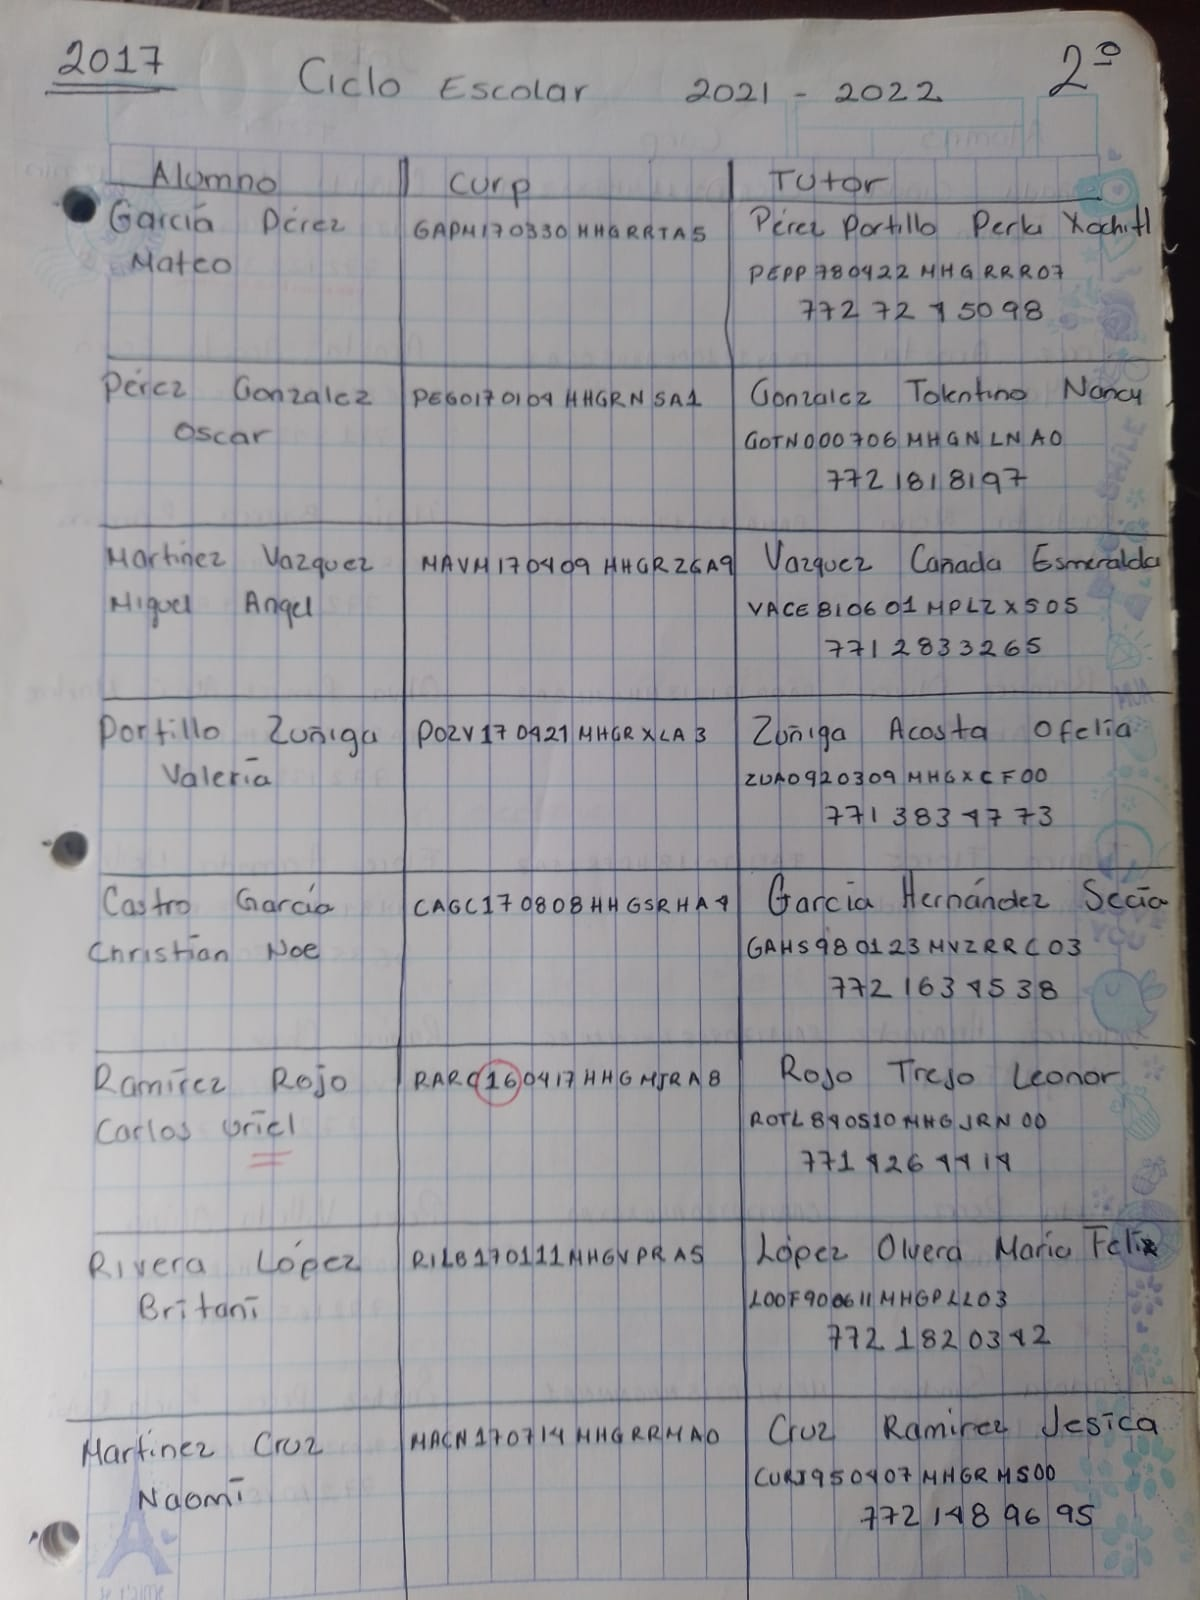 2017
Ciclo Escolar 2021 - 2022
2º
Alumno Curp Tutor
García Pérez GAPM170330HHGRRTA5 Pérez Portillo Perla Xochitl
Mateo PEPP780422MHGRRR07
772 72 45098
Pérez Gonzalez PEGO170104HHGRNSA1 Gonzalez Tolentino Nancy
Oscar GOTN000706MHGNLNA0
7721818197
Martínez Vazquez MAVM170409HHGRZGA9 Vazquez Cañada Esmeralda
Miguel Angel VACE810601MPLZXS05
7712833265
Portillo Zuñiga POZV170421MHGRXLA3 Zuñiga Acosta Ofelia
Valeria ZUAO920309MHGXCF00
771 383 4773
Castro García CAGC170808HHGSRHA4 García Hernández Secia
Christian Noe GAHS980123MVZRRC03
772 163 4538
Ramírez Rojo RARC160417HHGMJRA8 Rojo Trejo Leonor
Carlos Uriel ROTL840510MHGJRN00
771 426 4414
Rivera López RILB170111MHGVPRA5 López Olvera María Felix
Britani LOOF900611MHGPLL03
772 182 0342
Martínez Cruz MACN170714MHGRRMA0 Cruz Ramirez Jesica
Naomi CURJ950407MHGRMS00
772 148 96 95
je t'aime